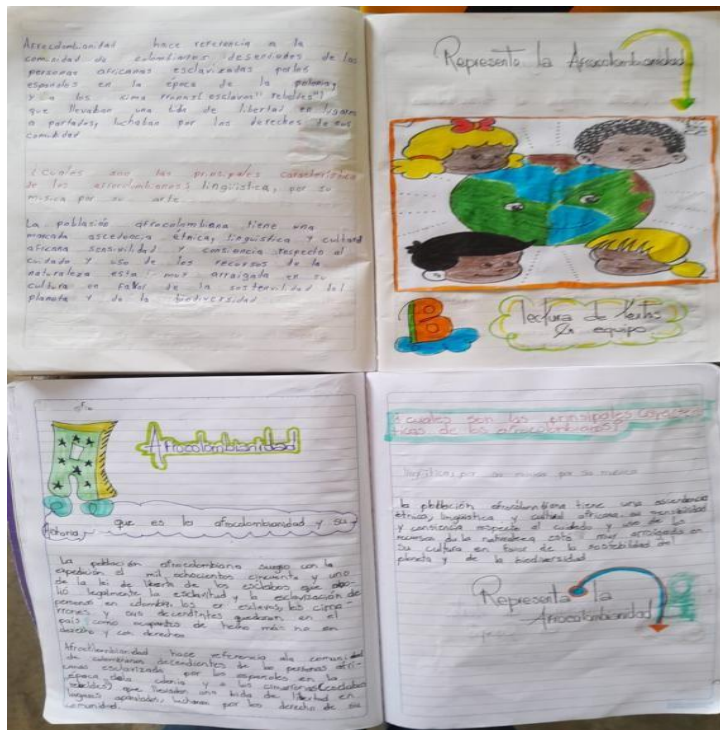 Afrocolombianidad hace referencia a la
comunidad de colombianos descendes de las
personas africanas esclavizadas por los
espanoles en la época de la
y a los cima rrones( esclavos" rebeldes")
que llevaban una bida de libertad en lugares
a partados, luchaban por los derechos de sus
comunidad
¿Cuales son las principales caracteristica
de los afrocolombianos? lingüística, por su
musica por su arte
La población afrocolombiana tiene una
marcada ascedencia étnica, lingüistica y cultural
africana sensivilidad y consiencia respecto al
cuidado y uso de los recursos de la
naturaleza esta muy arraigada en su
cultura en favor de la sostenvilidad del
planeta y de la biodiversidad
Represento la Afrocolombianidad
B
lectura de textos
en equipo
A
Afrocolombianidad
que es la afrocolombianidad y su
historia
La población afrocolombiana surgio con la
expedición el mil ochocientos cincuenta y uno
de la lei de liberta de los esclabos que abo-
lió legalmente la esclavitud y la esclavización de
personas en colombia los ex esclavos, los cima-
rrones y sus decendintes quedaron en el
país como ocupantes de hecho más no en
derecho y con derechos
Afrocolombianidad hace referencia ala comunidad
de colombianos decendientes de las personas afri-
canas esclavizada por los espanoles en la
época dela colonia y a los cimarrones(esclabos
rebeldes) que llevaban una bida de libertad en
lugares apartados, luchaban por los derecho de su
comunidad.
¿cuales son las prinsipales caracteris
ticas de los afrocolombianos?
lingüística, por su musica por su
la población afrocolombiana tiene una ascendencia
étnica, lingüistica y cultural africana su sensibilidad
y consiencia respecto al cuidado y uso de los
recursos de la naturaleza está muy arraigada en
su cultura en favor de la sostebilidad del
planeta y de la biodiversidad
Represento la
Afrocolombianidad